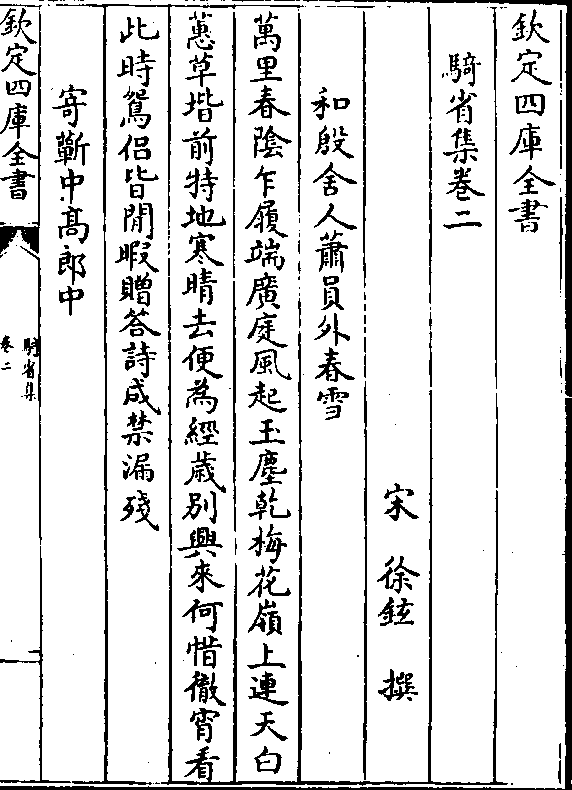 欽定四庫全書
騎省集卷二
宋　徐鉉　撰
和殷舍人蕭員外春雪
萬里春陰乍履端廣庭風起玉塵乾梅花嶺上連天白
蕙草堦前特地寒晴去便為經歳別興來何惜徹宵看
此時鴛侶皆閒暇贈答詩成禁漏殘
寄蘄中髙郎中
欽定四庫全書
騎省集
卷二
一